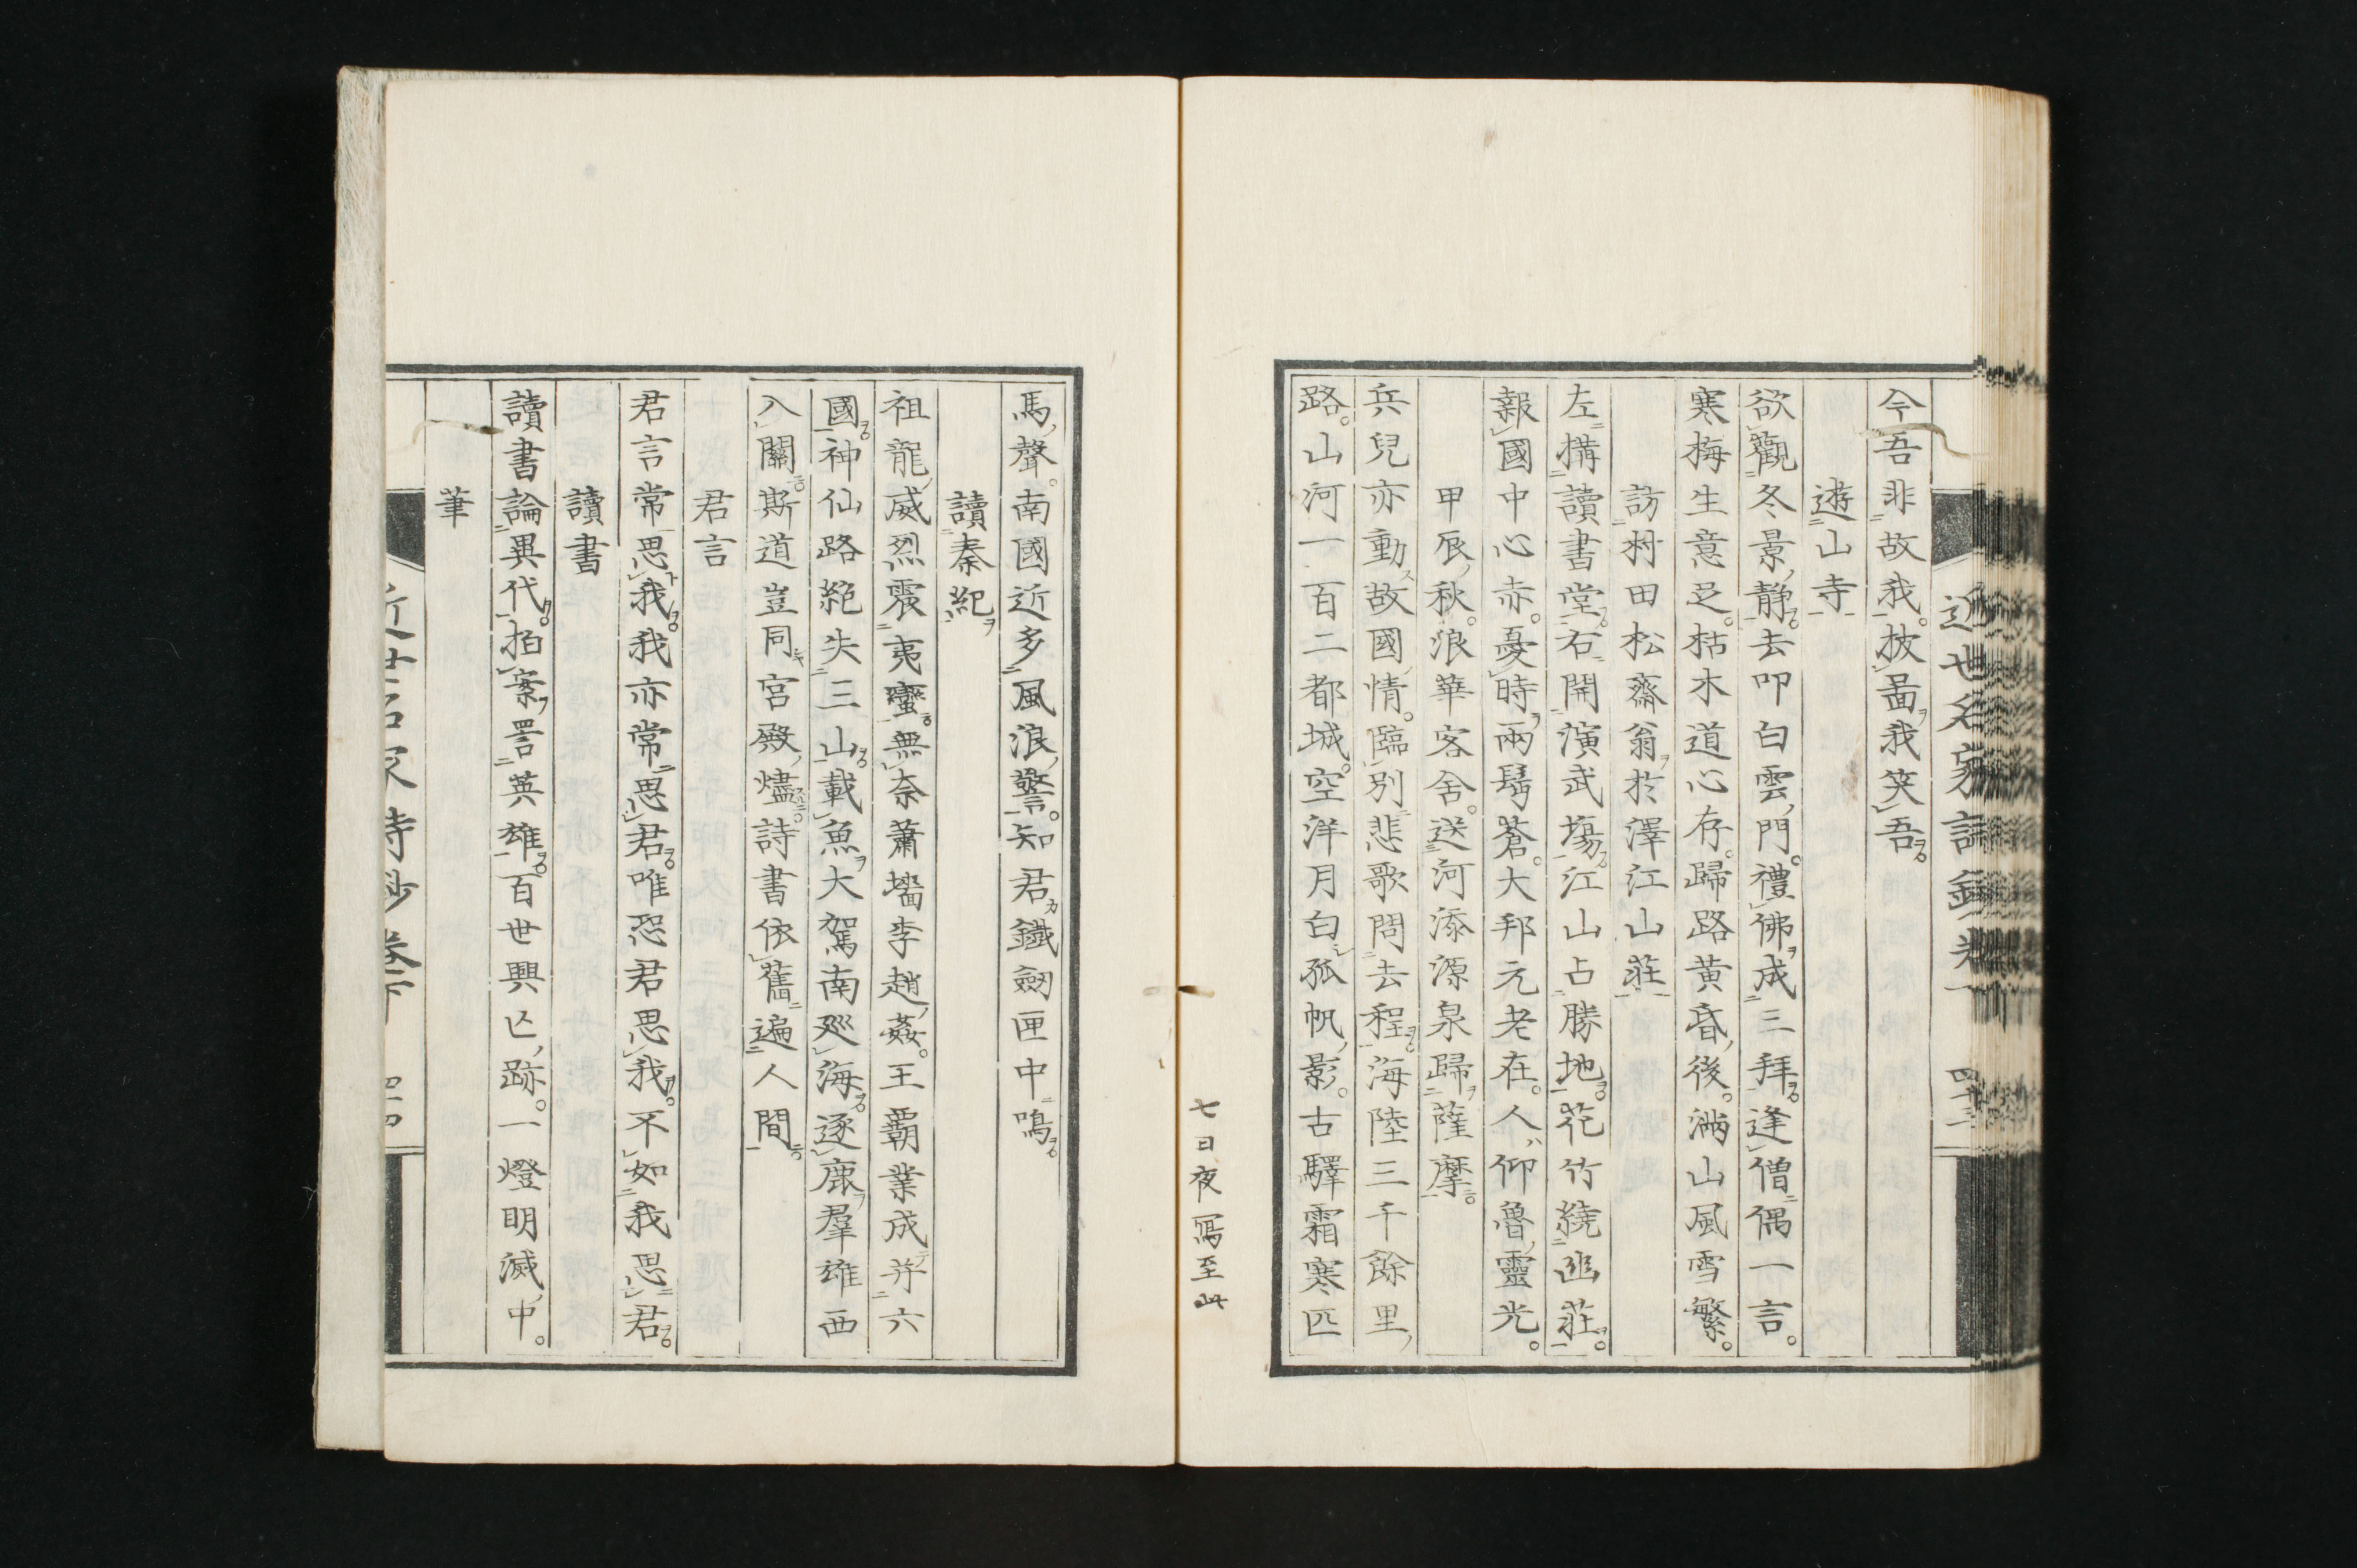 今吾非故我。披圖我笑吾。
遊山寺
欲觀冬景静去叩白雲門。禮佛成三拜逢僧偶一言。
寒梅生意足。枯木道心存。歸路黄昏後。満山風雪繁。
訪村田松齋翁於澤江山莊
左構讀書堂右開演武塲江山占勝地花竹繞幽莊。
報國中心赤。憂時兩鬂蒼。大邦元老在。人仰魯靈光。
甲辰秋。浪華客舍。送河添源泉歸薩摩。
兵兒亦動故國情。臨別悲歌問去程。海陸三千餘里
路。山河一百二都城。空洋月白孤帆影。古驛霜寒匹
七日夜寫至此
馬聲。南國近多風浪警。知君鐵劔匣中鳴
讀秦紀
祖龍威烈震夷蠻。無奈蕭墻李趙姦。王霸業成并六
國。神仙路絶失三山載魚大駕南巡海。逐鹿羣雄西
入關。斯道豈同宮殿燼。詩書依舊遍人間。
君言
君言常思我。我亦常思君。唯恐君思我。不如我思君。
讀書
讀書論異代。拍案詈英雄。百世興亡跡。一燈明滅中。
筆